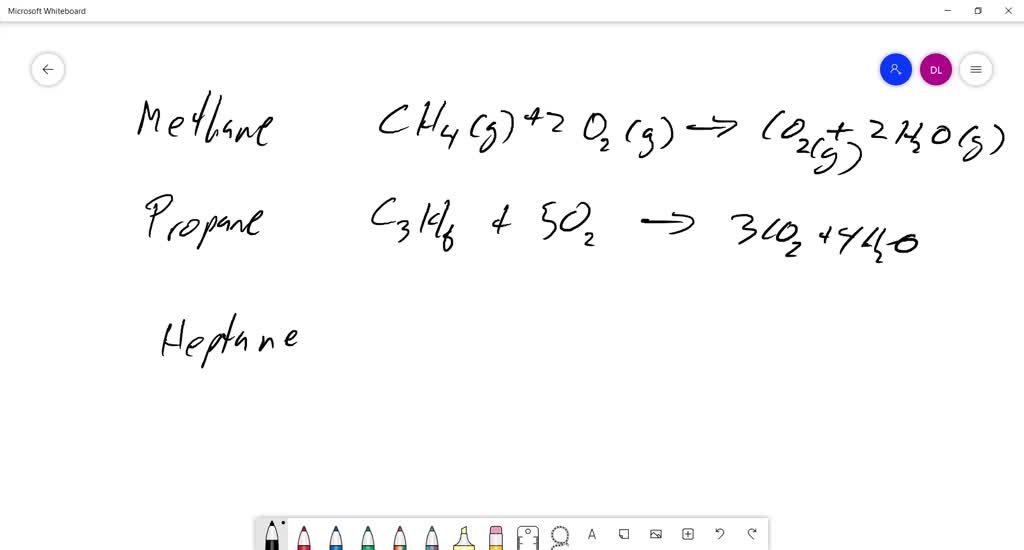 Microsoft Whiteboard
DL
Methane CH₄(g) + 2 O₂(g) → CO₂(g) + 2 H₂O(g)
Propane C₃H₈ + 5O₂ → 3CO₂ + 4H₂O
Heptane
A